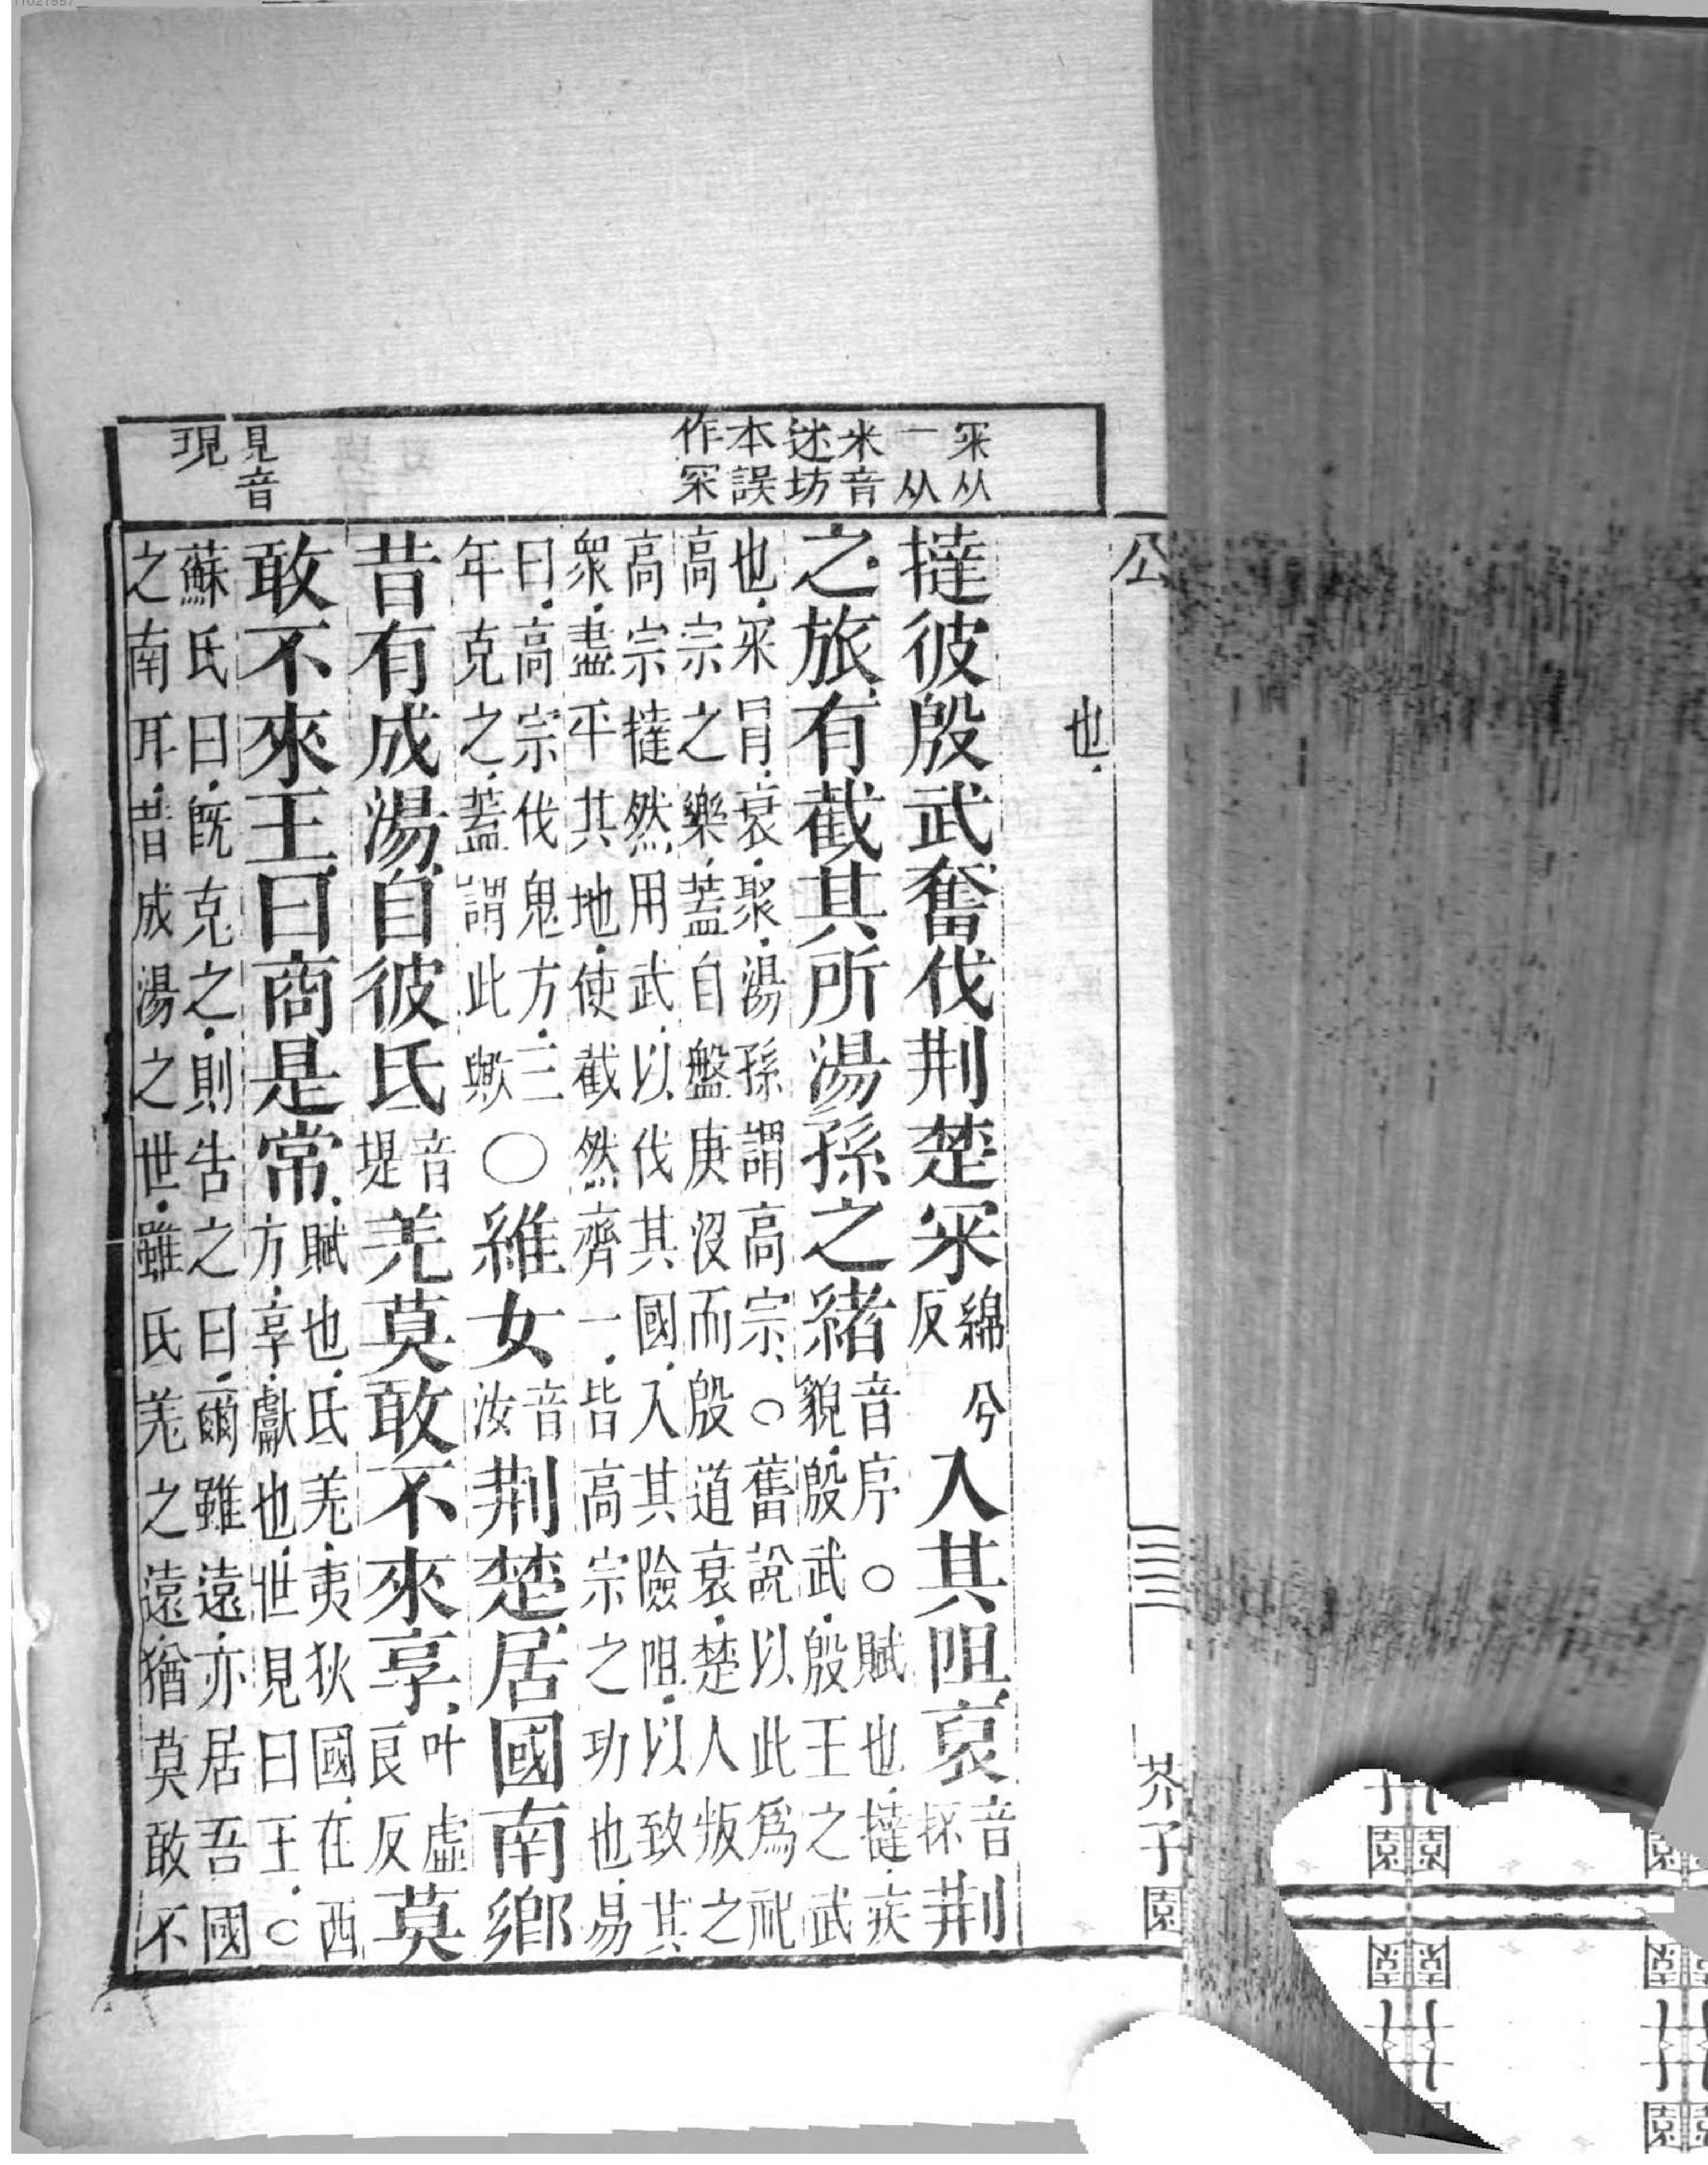 冞从
一从
米音
迷坊
本誤
作罙
見音
現
也.
撻彼殷武奮伐荆楚冞綿兮反入其阻裒音抔荆
之旅有截其所湯孫之緒音序○賦也撻疾貌殷武殷王之武
也冞冒裒聚湯孫謂高宗○舊說以此爲祀
高宗之樂蓋自盤庚沒而殷道衰楚人叛之
高宗撻然用武以伐其國入其險阻以致其
衆盡平其地使截然齊一皆高宗之功也易
曰高宗伐鬼方三年克之蓋謂此歟○維女音汝荆楚居國南鄉
昔有成湯自彼氐音堤羌莫敢不來享叶虛良反莫
敢不來王曰商是常賦也氐羌夷狄國在西方享獻也世見曰王○
蘇氏曰旣克之則告之曰爾雖遠亦居吾國
之南耳昔成湯之世雖氐羌之遠猶莫敢不
芥子園